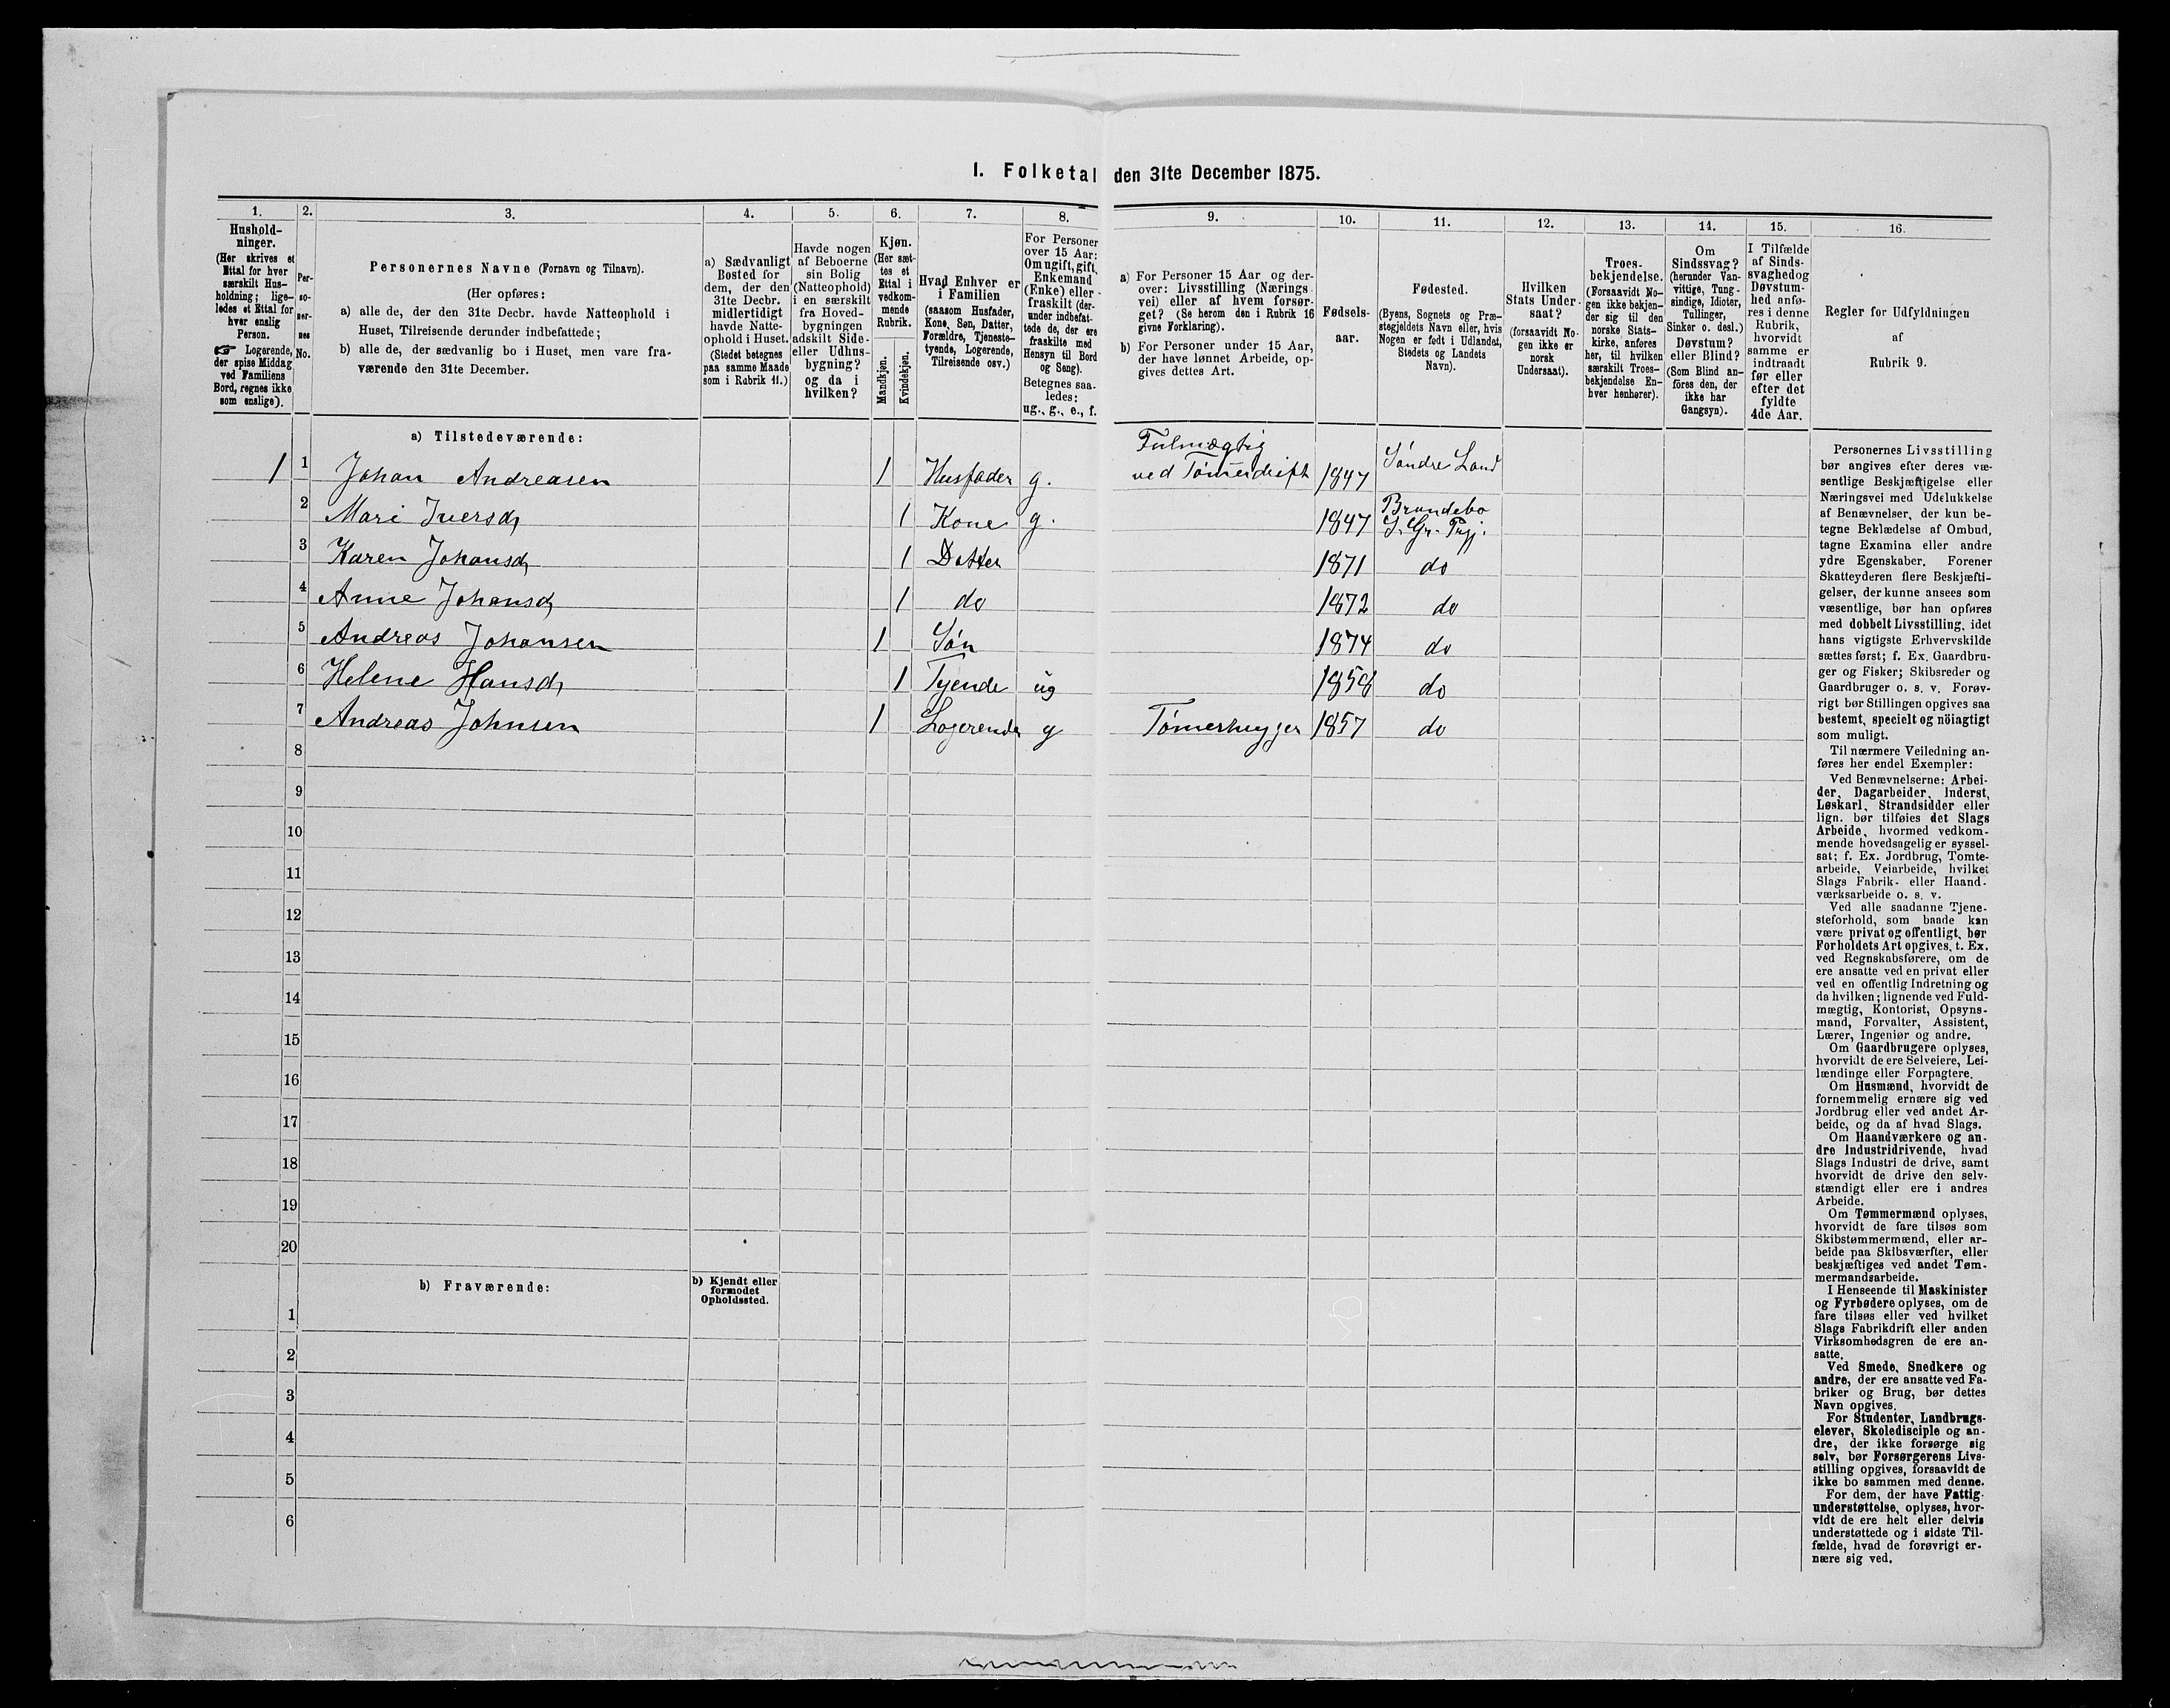 I. Folketal den 31te December 1875.
1. 2. 3. 4. 5. 6. 7. 8. 9. 10. 11. 12. 13. 14. 15. 16.
Hushold-
ninger.
(Her skrives et
Ettal for hver
særskilt Hus-
holdning; lige-
ledes et Ettal for
hver enslig
Person.
☞ Logerende,
der spise Middag
ved Familiens
Bord, regnes ikke
som enslige).
Per-
so-
ner-
nes
No.
Personernes Navne (Fornavn og Tilnavn).
(Her opføres:
a) alle de, der den 31te Decbr. havde Natteophold i
Huset, Tilreisende derunder indbefattede;
b) alle de, der sædvanlig bo i Huset, men vare fra-
værende den 31te December.
a) Sædvanligt
Bosted for
dem, der den
31te Decbr.
midlertidigt
havde Natte-
ophold i Huset.
(Stedet betegnes
paa samme Maade
som i Rubrik 11.)
Havde nogen
af Beboerne
sin Bolig
(Natteophold)
i en særskilt
fra Hoved-
bygningen
adskilt Side-
eller Udhus-
bygning?
og da i
hvilken?
Kjøn.
(Her sæt-
tes et
Ettal i
vedkom-
mende
Rubrik.
Mandkjøn.
Kvindekjøn.
Hvad Enhver er
i Familien
(saasom Husfader,
Kone, Søn, Datter,
Forældre, Tjeneste-
tyende, Logerende,
Tilreisende osv.)
For Personer
over 15 Aar:
Om ugift, gift,
Enkemand
(Enke) eller
fraskilt (der-
under indbefat-
tede de, der ere
fraskilte med
Hensyn til Bord
og Seng).
Betegnes saa-
ledes:
ug., g., e., f.
a) For Personer 15 Aar og der-
over: Livsstilling (Nærings-
vei) eller af hvem forsør-
get? (Se herom den i Rubrik 16
givne Forklaring).
b) For Personer under 15 Aar,
der have lønnet Arbeide, op-
gives dettes Art.
Fødsels-
aar.
Fødested.
(Byens, Sognets og Præ-
stegjeldets Navn eller, hvis
Nogen er født i Udlandet,
Stedets og Landets
Navn).
Hvilken
Stats Under-
saat?
(forsaavidt No-
gen ikke er
norsk
Undersaat).
Troes-
bekjendelse.
(Forsaavidt No-
gen ikke bekjen-
der sig til den
norske Stats-
kirke, anføres
her, til hvilken
særskilt Troes-
bekjendelse En-
hver henhører).
Om
Sindssvag?
(herunder Van-
vittige, Tung-
sindige, Idioter,
Tullinger,
Sinker o. desl.)
Døvstum?
eller Blind?
(Som Blind an-
føres den, der
ikke har
Gangsyn).
I Tilfælde
af Sinds-
svaghed og
Døvstum-
hed anfø-
res i denne
Rubrik,
hvorvidt
samme er
indtraadt
før eller
efter det
fyldte
4de Aar.
Regler for Udfyldningen
af
Rubrik 9.
a) Tilstedeværende:
Fulmægtig
1 1 Johan Andreasen 1 Husfader g. ved Tømerdrift 1847 Søndre Land
2 Mari Iversd 1 Kone g. 1847 Brandebo
S. Gr. Prgj.
3 Karen Johansd 1 Datter 1871 do
4 Anne Johansd 1 do 1872 do
5 Andreas Johansen 1 Søn 1874 do
6 Helene Hansd 1 Tyende ug 1858 do
7 Andreas Johnsen 1 Logerende g Tømerhugger 1857 do
8
9
10
11
12
13
14
15
16
17
18
19
20
b) Fraværende:
b) Kjendt eller
formodet
Opholdssted.
1
2
3
4
5
6
Personernes Livsstilling
bør angives efter deres væ-
sentlige Beskjæftigelse eller
Næringsvei med Udelukkelse
af Benævnelser, der kun be-
tegne Beklædelse af Ombud,
tagne Examina eller andre
ydre Egenskaber. Forener
Skatteyderen flere Beskjæfti-
gelser, der kunne ansees som
væsentlige, bør han opføres
med dobbelt Livsstilling, idet
hans vigtigste Erhvervskilde
sættes først; f. Ex. Gaardbru-
ger og Fisker; Skibsreder og
Gaardbruger o. s. v. Forøv-
rigt bør Stillingen opgives saa
bestemt, specielt og nöiagtigt
som muligt.
Til nærmere Veiledning an-
føres her endel Exempler:
Ved Benævnelserne: Arbei-
der, Dagarbeider, Inderst,
Løskarl, Strandsidder eller
lign. bør tilføies det Slags
Arbeide, hvormed vedkom-
mende hovedsagelig er syssel-
sat; f. Ex. Jordbrug, Tomte-
arbeide, Veiarbeide, hvilket
Slags Fabrik- eller Haand-
værksarbeide o. s. v.
Ved alle saadanne Tjene-
steforhold, som baade kan
være privat og offentligt, bør
Forholdets Art opgives, t. Ex.
ved Regnskabsførere, om de
ere ansatte ved en privat eller
ved en offentlig Indretning og
da hvilken; lignende ved Fuld-
mægtig, Kontorist, Opsyns-
mand, Forvalter, Assistent,
Lærer, Ingeniør og andre.
Om Gaardbrugere oplyses,
hvorvidt de ere Selveiere, Lei-
lændinge eller Forpagtere.
Om Husmænd, hvorvidt de
fornemmelig ernære sig ved
Jordbrug eller ved andet Ar-
beide, og da af hvad Slags.
Om Haandværkere og an-
dre Industridrivende, hvad
Slags Industri de drive, samt
hvorvidt de drive den selv-
stændigt eller ere i andres
Arbeide.
Om Tømmermænd oplyses,
hvorvidt de fare tilsøs som
Skibstømmermænd, eller ar-
beide paa Skibsværfter, eller
beskjæftiges ved andet Tøm-
mermandsarbeide.
I Henseende til Maskinister
og Fyrbødere oplyses, om de
fare tilsøs eller ved hvilket
Slags Fabrikdrift eller anden
Virksomhedsgren de ere an-
satte.
Ved Smede, Snedkere og
andre, der ere ansatte ved Fa-
briker og Brug, bør dettes
Navn opgives.
For Studenter, Landbrugs-
elever, Skoledisciple og an-
dre, der ikke forsørge sig
selv, bør Forsørgerens Livs-
stilling opgives, forsaavidt de
ikke bo sammen med denne.
For dem, der have Fattig-
understøttelse, oplyses, hvor-
vidt de ere helt eller delvis
understøttede og i sidste Til-
fælde, hvad de forøvrigt er-
nære sig ved.